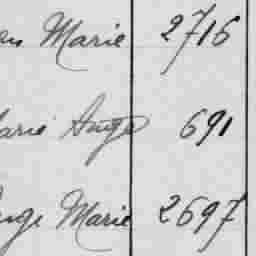 Marie 2716
Marie Ange 691
Ange Marie 2697